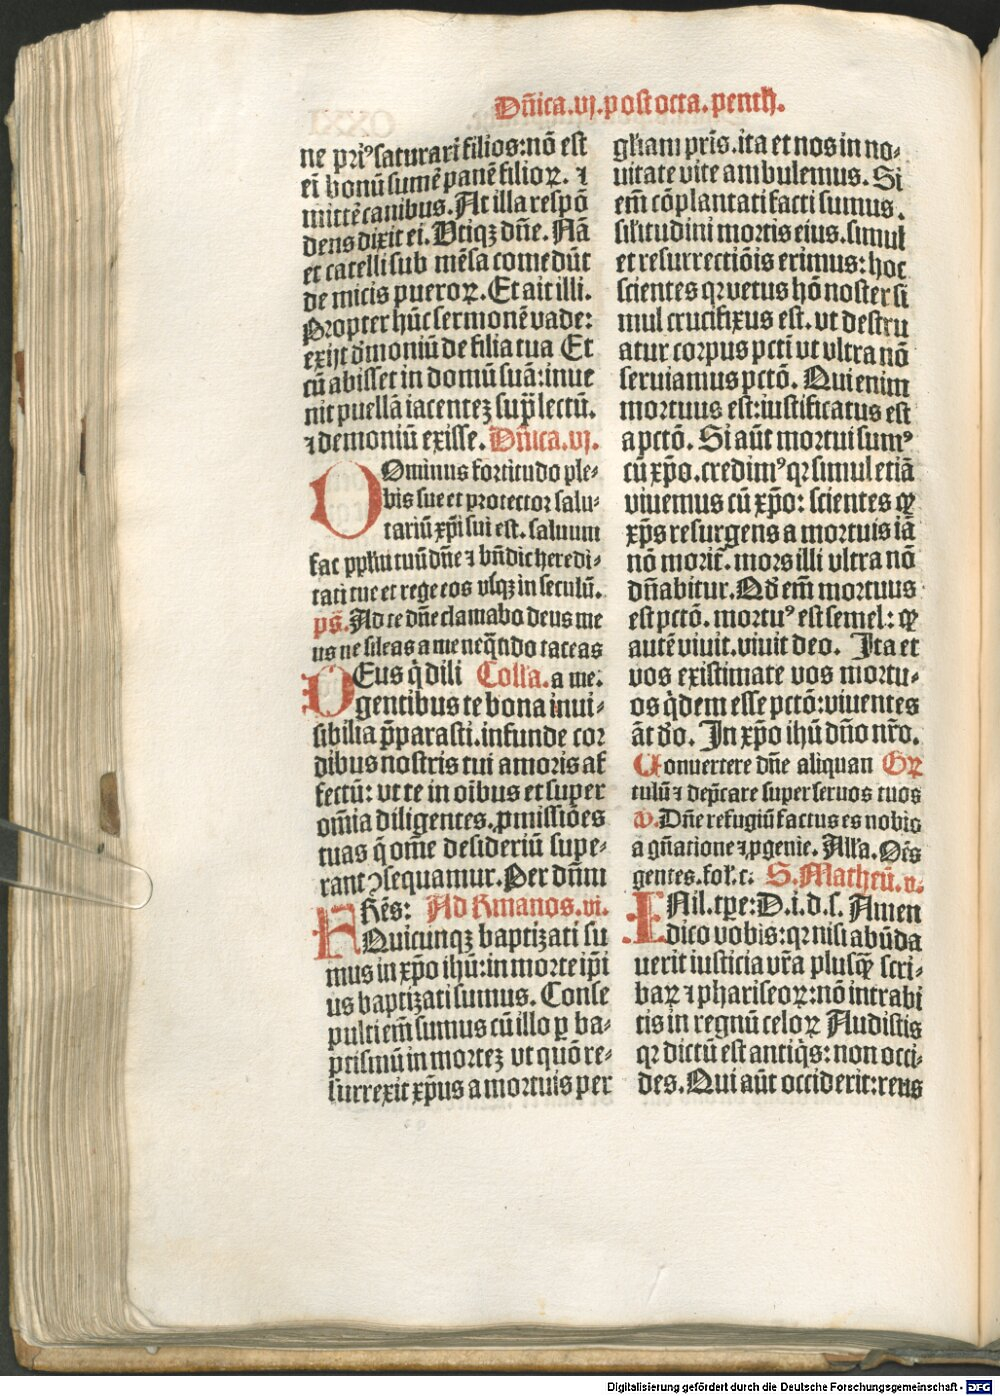 Dn̄ica.vj.post octa.penth̄.
ne pri⁹ saturari filios:nō est
ei bonū sumē panē filioꝝ. ⁊
mittē canibus. At illa respō
dens dixit ei. Vtiqꝫ dn̄e. Nā
et catelli sub mēsa comedūt
de micis pueroꝝ. Et ait illi.
Propter hūc sermonē vade:
exijt d̄moniū de filia tua Et
cū abisset in domū suā:inue
nit puellā iacenteꝫ sup̄ lectū.
⁊ demoniū exisse. Dn̄ica.vj.
DOminus fortitudo ple⸗
bis sue et protector salu⸗
tariū xp̄i sui est. saluum
fac pp̄lm tuū dn̄e ⁊ bn̄dic heredi⸗
tati tue et rege eos vsqꝫ in seculū.
ps̄. Ad te dn̄e clamabo deus me
us ne sileas a me neq̄ndo taceas
DEus q̄ dili Coll'a. a me.
gentibus te bona inui⸗
sibilia p̄parasti.infunde cor
dibus nostris tui amoris af
fectū: vt te in oībus et super
om̄ia diligentes.ꝓmissiōes
tuas q̄ om̄e desideriū supe⸗
rant ꝯsequamur. Per dn̄m
FRēs: Ad Rmanos.vi.
Quicunqꝫ baptizati su
mus in xp̄o ihū:in morte ip̄i
us baptizati sumus. Conse
pulti em̄ sumus cū illo ꝑ ba⸗
ptismū in morteꝫ vt quō re⸗
surrexit xp̄us a mortuis per
gl'iam pr̄is.ita et nos in no⸗
uitate vite ambulemus. Si
em̄ cōplantati facti sumus.
sil'itudini mortis eius. simul
et resurrectiōis erimus: hoc
scientes qꝛ vetus hō noster si
mul crucifixus est. vt destru
atur corpus pcti vt vltra nō
seruiamus pctō. Qui enim
mortuus est:iustificatus est
a pctō. Si aūt mortui sum⁹
cū xp̄o.credim⁹ qꝛ simul etiā
viuemus cū xp̄o: scientes qꝫ
xp̄s resurgens a mortuis iā
nō morit̄. mors illi vltra nō
dn̄abitur. Qd em̄ mortuus
est pctō. mortu⁹ est semel: qꝫ
autē viuit.viuit deo. Ita et
vos existimate vos mortu⸗
os q̇dem esse pctō:viuentes
āt d̄o. In xp̄o ihū dn̄o nr̄o.
Conuertere dn̄e aliquan Gꝛ
tulū ⁊ dep̄care super seruos tuos
v. Dn̄e refugiū factus es nobis
a gn̄atione ⁊ ꝓgenie. All'a. Oēs
gentes.fol'.c. S. Matheū.v.
INil.tpe:D.i.d.s. Amen
dico vobis:qꝛ nisi abūda
uerit iusticia vr̄a plusqꝫ scri⸗
baꝝ ⁊ phariseoꝝ:nō intrabi
tis in regnū celoꝝ Audistis
qꝛ dictū est antiq̇s: non occi⸗
des. Qui aūt occiderit:reus
Digitalisierung gefördert durch die Deutsche Forschungsgemeinschaft - DFG